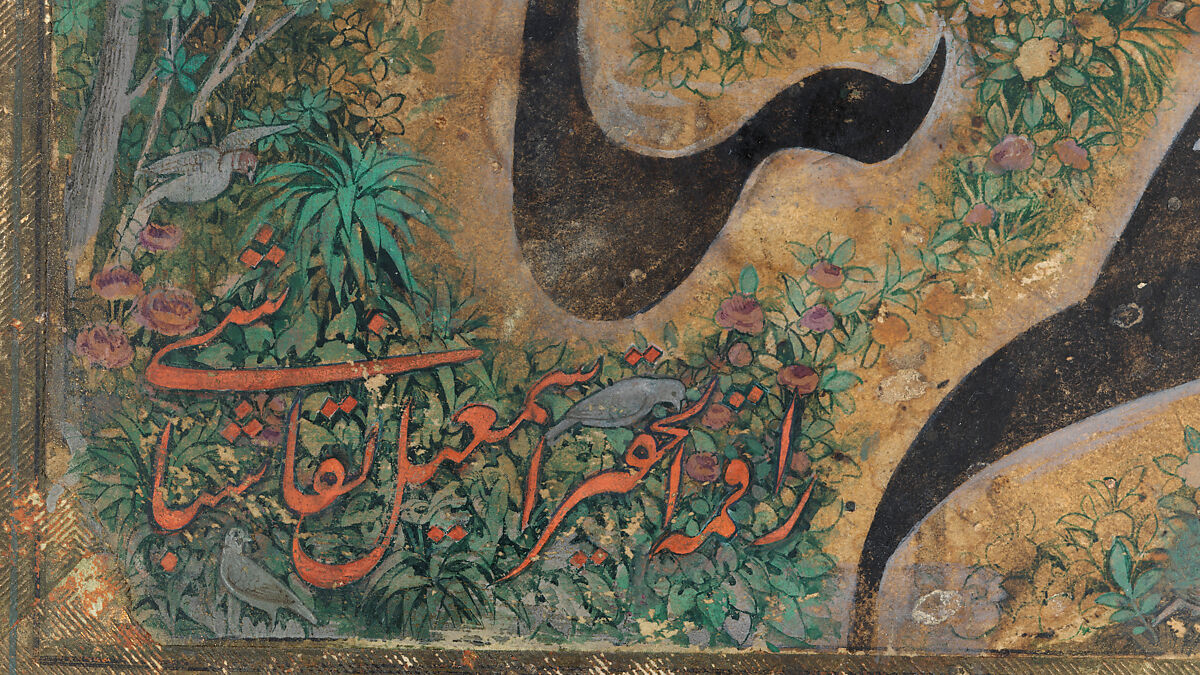 راقمه الحقیر اسمعیل نقاشباشی